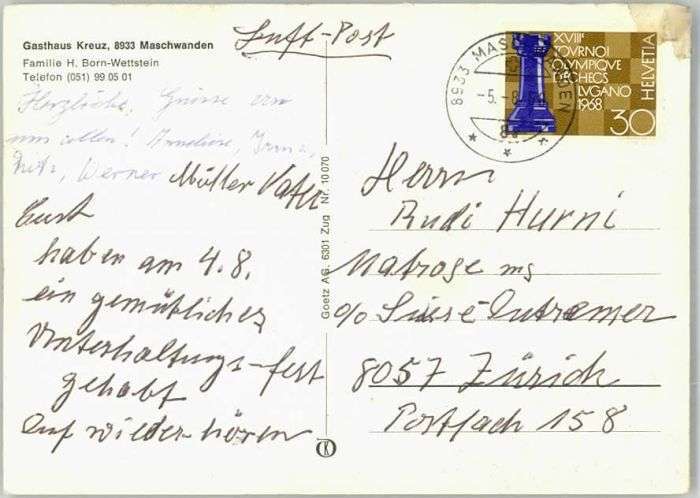 Gasthaus Kreuz, 8933 Maschwanden
Familie H. Born-Wettstein
Telefon (051) 99 05 01
Luft-Post
Herzliche Grüsse von
uns allen! Anneliese, Irma,
Werner Müller Vater
haben am 4.8.
ein gemütliches
Unterhaltungs-fest
gehabt
Auf wieder-hören
Goetz AG, 6301 Zug Nr. 10070
8933 MASCHWANDEN
-5.-8.
XVIIIe
TOVRNOI
OLYMPIQVE
D'ECHECS
LVGANO
1968
HELVETIA
30
Herrn
Rudi Hurni
Matrose
c/o Suisse-Outremer
8057 Zürich
Postfach 158